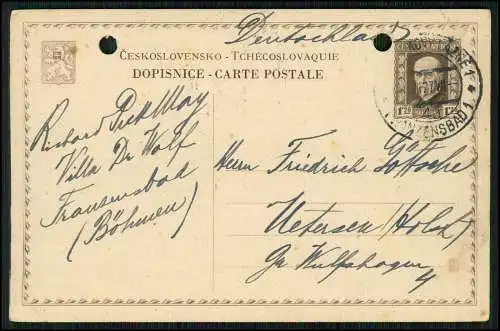 Deutschland
ČESKOSLOVENSKO - TCHÉCOSLOVAQUIE
DOPISNICE - CARTE POSTALE
FRANZENSBAD 1
Richard Pick May
Villa Dr Wolf
Franzensbad
(Böhmen)
Herrn Friedrich
Uetersen (Holst)
Gr. Wulfhagen
4